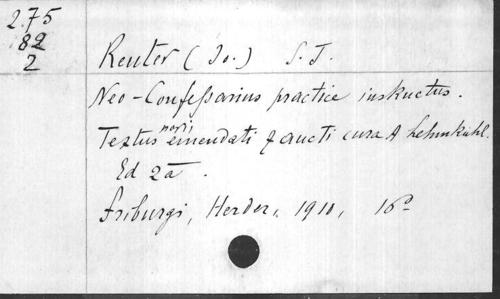 275
82
2
Reuter (Jo.) S. J.
Neo-Confessarius practice instructus.
Textus novi, emendati & aucti cura A Lehmkuhl.
Ed 2a.
Friburgi, Herder, 1910, 16o